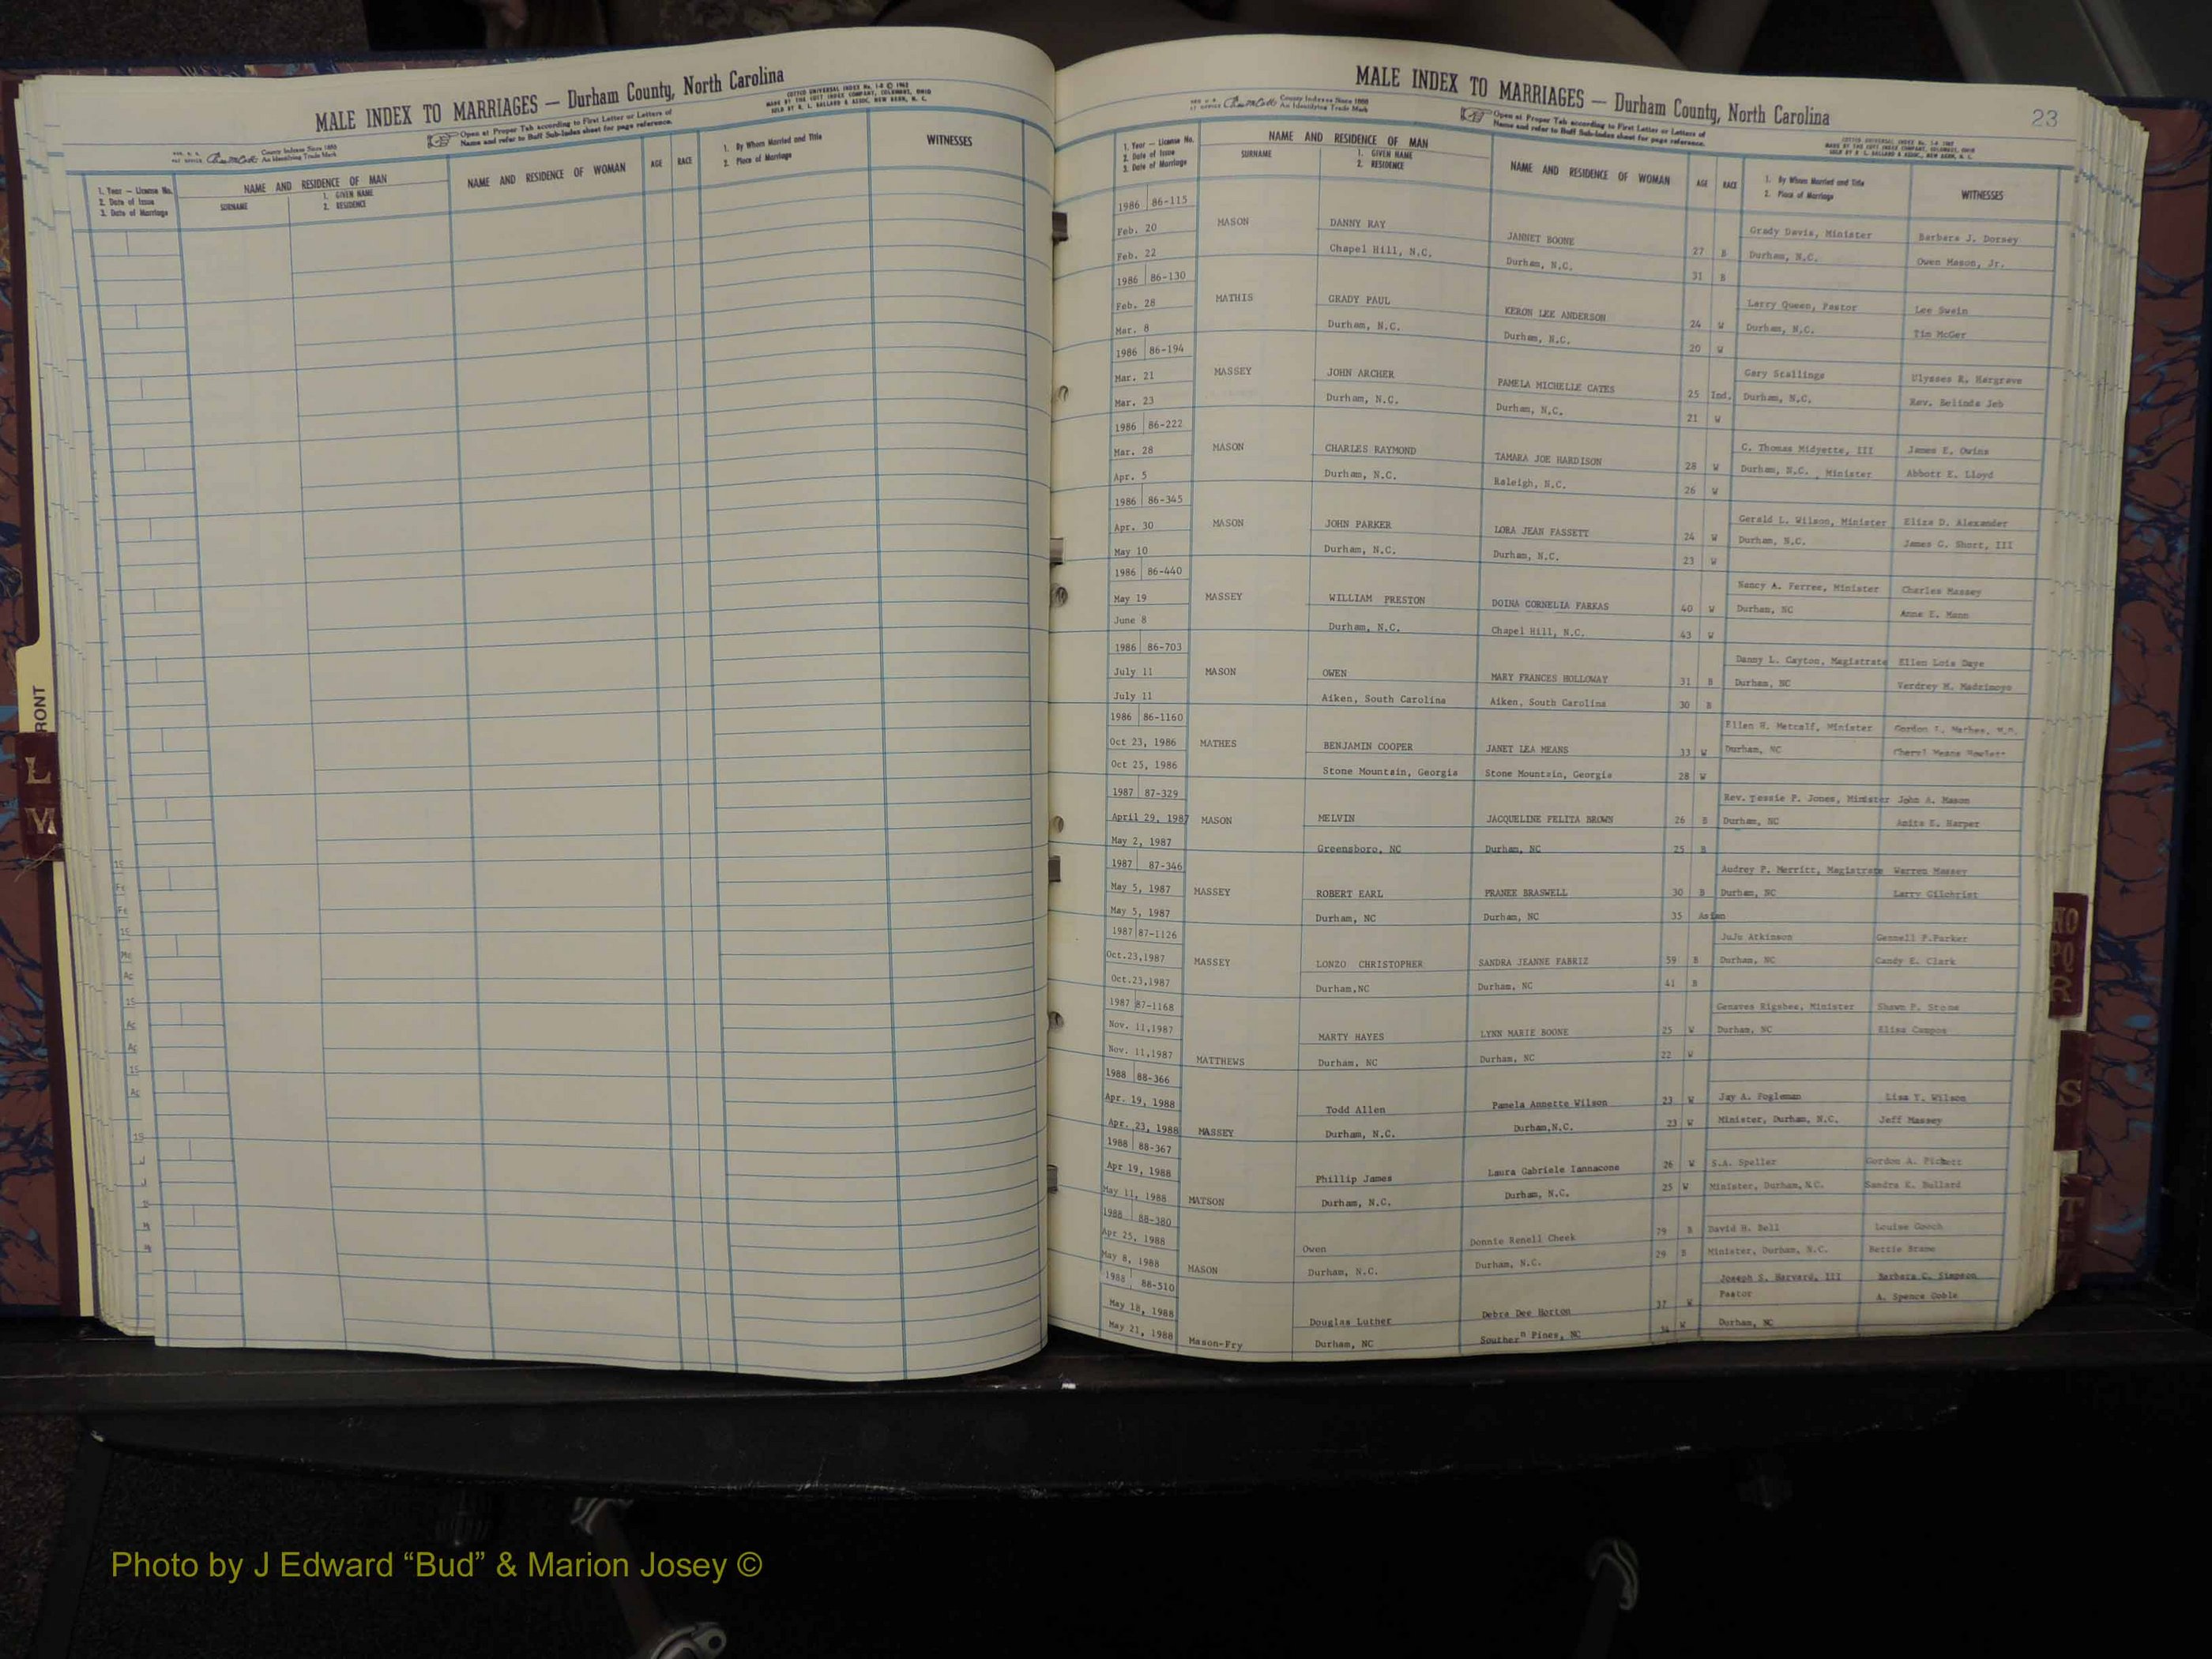 MALE INDEX TO MARRIAGES — Durham County, North Carolina
COTT'S UNIVERSAL INDEX No. 1-8 © 1962
MADE BY THE COTT INDEX COMPANY, COLUMBUS, OHIO
SOLD BY R. L. BALLARD & ASSOC, NEW BERN, N. C.
County Indexes Since 1888
An Identifying Trade Mark
Open at Proper Tab according to First Letter or Letters of
Name and refer to Buff Sub-Index sheet for page reference.
1. Year — License No.
2. Date of Issue
3. Date of Marriage
NAME AND RESIDENCE OF MAN
SURNAME
1. GIVEN NAME
2. RESIDENCE
NAME AND RESIDENCE OF WOMAN
AGE
RACE
1. By Whom Married and Title
2. Place of Marriage
WITNESSES
RONT
L
MALE INDEX TO MARRIAGES — Durham County, North Carolina
23
County Indexes Since 1888
An Identifying Trade Mark
Open at Proper Tab according to First Letter or Letters of
Name and refer to Buff Sub-Index sheet for page reference.
1. Year — License No.
2. Date of Issue
3. Date of Marriage
NAME AND RESIDENCE OF MAN
SURNAME
1. GIVEN NAME
2. RESIDENCE
NAME AND RESIDENCE OF WOMAN
AGE
RACE
1. By Whom Married and Title
2. Place of Marriage
WITNESSES
1986 86-115
Feb. 20 MASON DANNY RAY JANNET BOONE 27 B Grady Davis, Minister Barbara J. Dorsey
Feb. 22 Chapel Hill, N.C. Durham, N.C. 31 B Durham, N.C. Owen Mason, Jr.
1986 86-130
Feb. 28 MATHIS GRADY PAUL KERON LEE ANDERSON 24 W Larry Queen, Pastor Lee Swein
Mar. 8 Durham, N.C. Durham, N.C. 20 W Durham, N.C. Tim McGer
1986 86-194
Mar. 21 MASSEY JOHN ARCHER PAMELA MICHELLE CATES 25 Ind. Gary Stallings Ulysses R. Hargrave
Mar. 23 Durham, N.C. Durham, N.C. 21 W Durham, N.C. Rev. Belinda Jeb
1986 86-222
Mar. 28 MASON CHARLES RAYMOND TAMARA JOE HARDISON 28 W C. Thomas Midyette, III James E. Owins
Apr. 5 Durham, N.C. Raleigh, N.C. 26 W Durham, N.C. , Minister Abbott E. Lloyd
1986 86-345
Apr. 30 MASON JOHN PARKER LORA JEAN FASSETT 24 W Gerald L. Wilson, Minister Eliza D. Alexander
May 10 Durham, N.C. Durham, N.C. 23 W Durham, N.C. James C. Short, III
1986 86-440
May 19 MASSEY WILLIAM PRESTON DOINA CORNELIA FARKAS 40 W Nancy A. Ferree, Minister Charles Massey
June 8 Durham, N.C. Chapel Hill, N.C. 43 W Durham, NC Anne E. Mann
1986 86-703
July 11 MASON OWEN MARY FRANCES HOLLOWAY 31 B Danny L. Cayton, Magistrate Ellen Lois Daye
July 11 Aiken, South Carolina Aiken, South Carolina 30 B Durham, NC Verdrey M. Madzimoyo
1986 86-1160
Oct 23, 1986 MATHES BENJAMIN COOPER JANET LEA MEANS 33 W Ellen H. Metcalf, Minister Gordon L. Mathes, M.D.
Oct 25, 1986 Stone Mountain, Georgia Stone Mountain, Georgia 28 W Durham, NC Cheryl Means Howlett
1987 87-329
April 29, 1987 MASON MELVIN JACQUELINE FELITA BROWN 26 B Rev. Tessie P. Jones, Minister John A. Mason
May 2, 1987 Greensboro, NC Durham, NC 25 B Durham, NC Anita E. Harper
1987 87-346
May 5, 1987 MASSEY ROBERT EARL PRANEE BRASWELL 30 B Audrey P. Merritt, Magistrate Warren Massey
May 5, 1987 Durham, NC Durham, NC 35 Asian Durham, NC Larry Gilchrist
1987 87-1126
Oct.23,1987 MASSEY LONZO CHRISTOPHER SANDRA JEANNE FABRIZ 59 B JuJu Atkinson Gennell P.Parker
Oct.23,1987 Durham,NC Durham, NC 41 B Durham, NC Candy E. Clark
1987 87-1168
Nov. 11,1987 MARTY HAYES LYNN MARIE BOONE 25 W Genaves Rigsbee, Minister Shawn P. Stone
Nov. 11,1987 MATTHEWS Durham, NC Durham, NC 22 W Durham, NC Elisa Campos
1988 88-366
Apr. 19, 1988 Todd Allen Pamela Annette Wilson 23 W Jay A. Fogleman Lisa Y. Wilson
Apr. 23, 1988 MASSEY Durham, N.C. Durham,N.C. 23 W Minister, Durham, N.C. Jeff Massey
1988 88-367
Apr 19, 1988 Phillip James Laura Gabriele Iannacone 26 W S.A. Speller Gordon A. Pickett
May 11, 1988 MATSON Durham, N.C. Durham, N.C. 25 W Minister, Durham,N.C. Sandra K. Bullard
1988 88-380
Apr 25, 1988 Owen Donnie Renell Cheek 29 B David H. Bell Louise Gooch
May 8, 1988 MASON Durham, N.C. Durham, N.C. 29 B Minister, Durham, N.C. Bettie Brame
1988 88-510 Joseph S. Harvard, III Barbara C. Simpson
May 18, 1988 Douglas Luther Debra Dee Horton 37 W Pastor A. Spence Goble
May 21, 1988 Mason-Fry Durham, NC Southern Pines, NC 34 W Durham, NC
S
T
Photo by J Edward “Bud” & Marion Josey ©